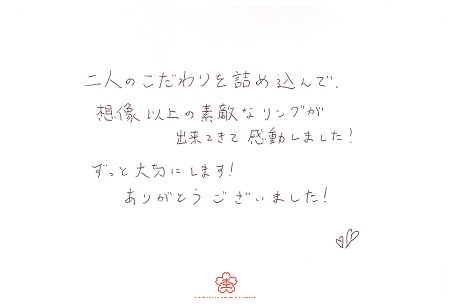 二人のこだわりを詰め込んで、
想像以上の素敵なリングが
出来てきて感動しました!
ずっと大切にします!
ありがとうございました!